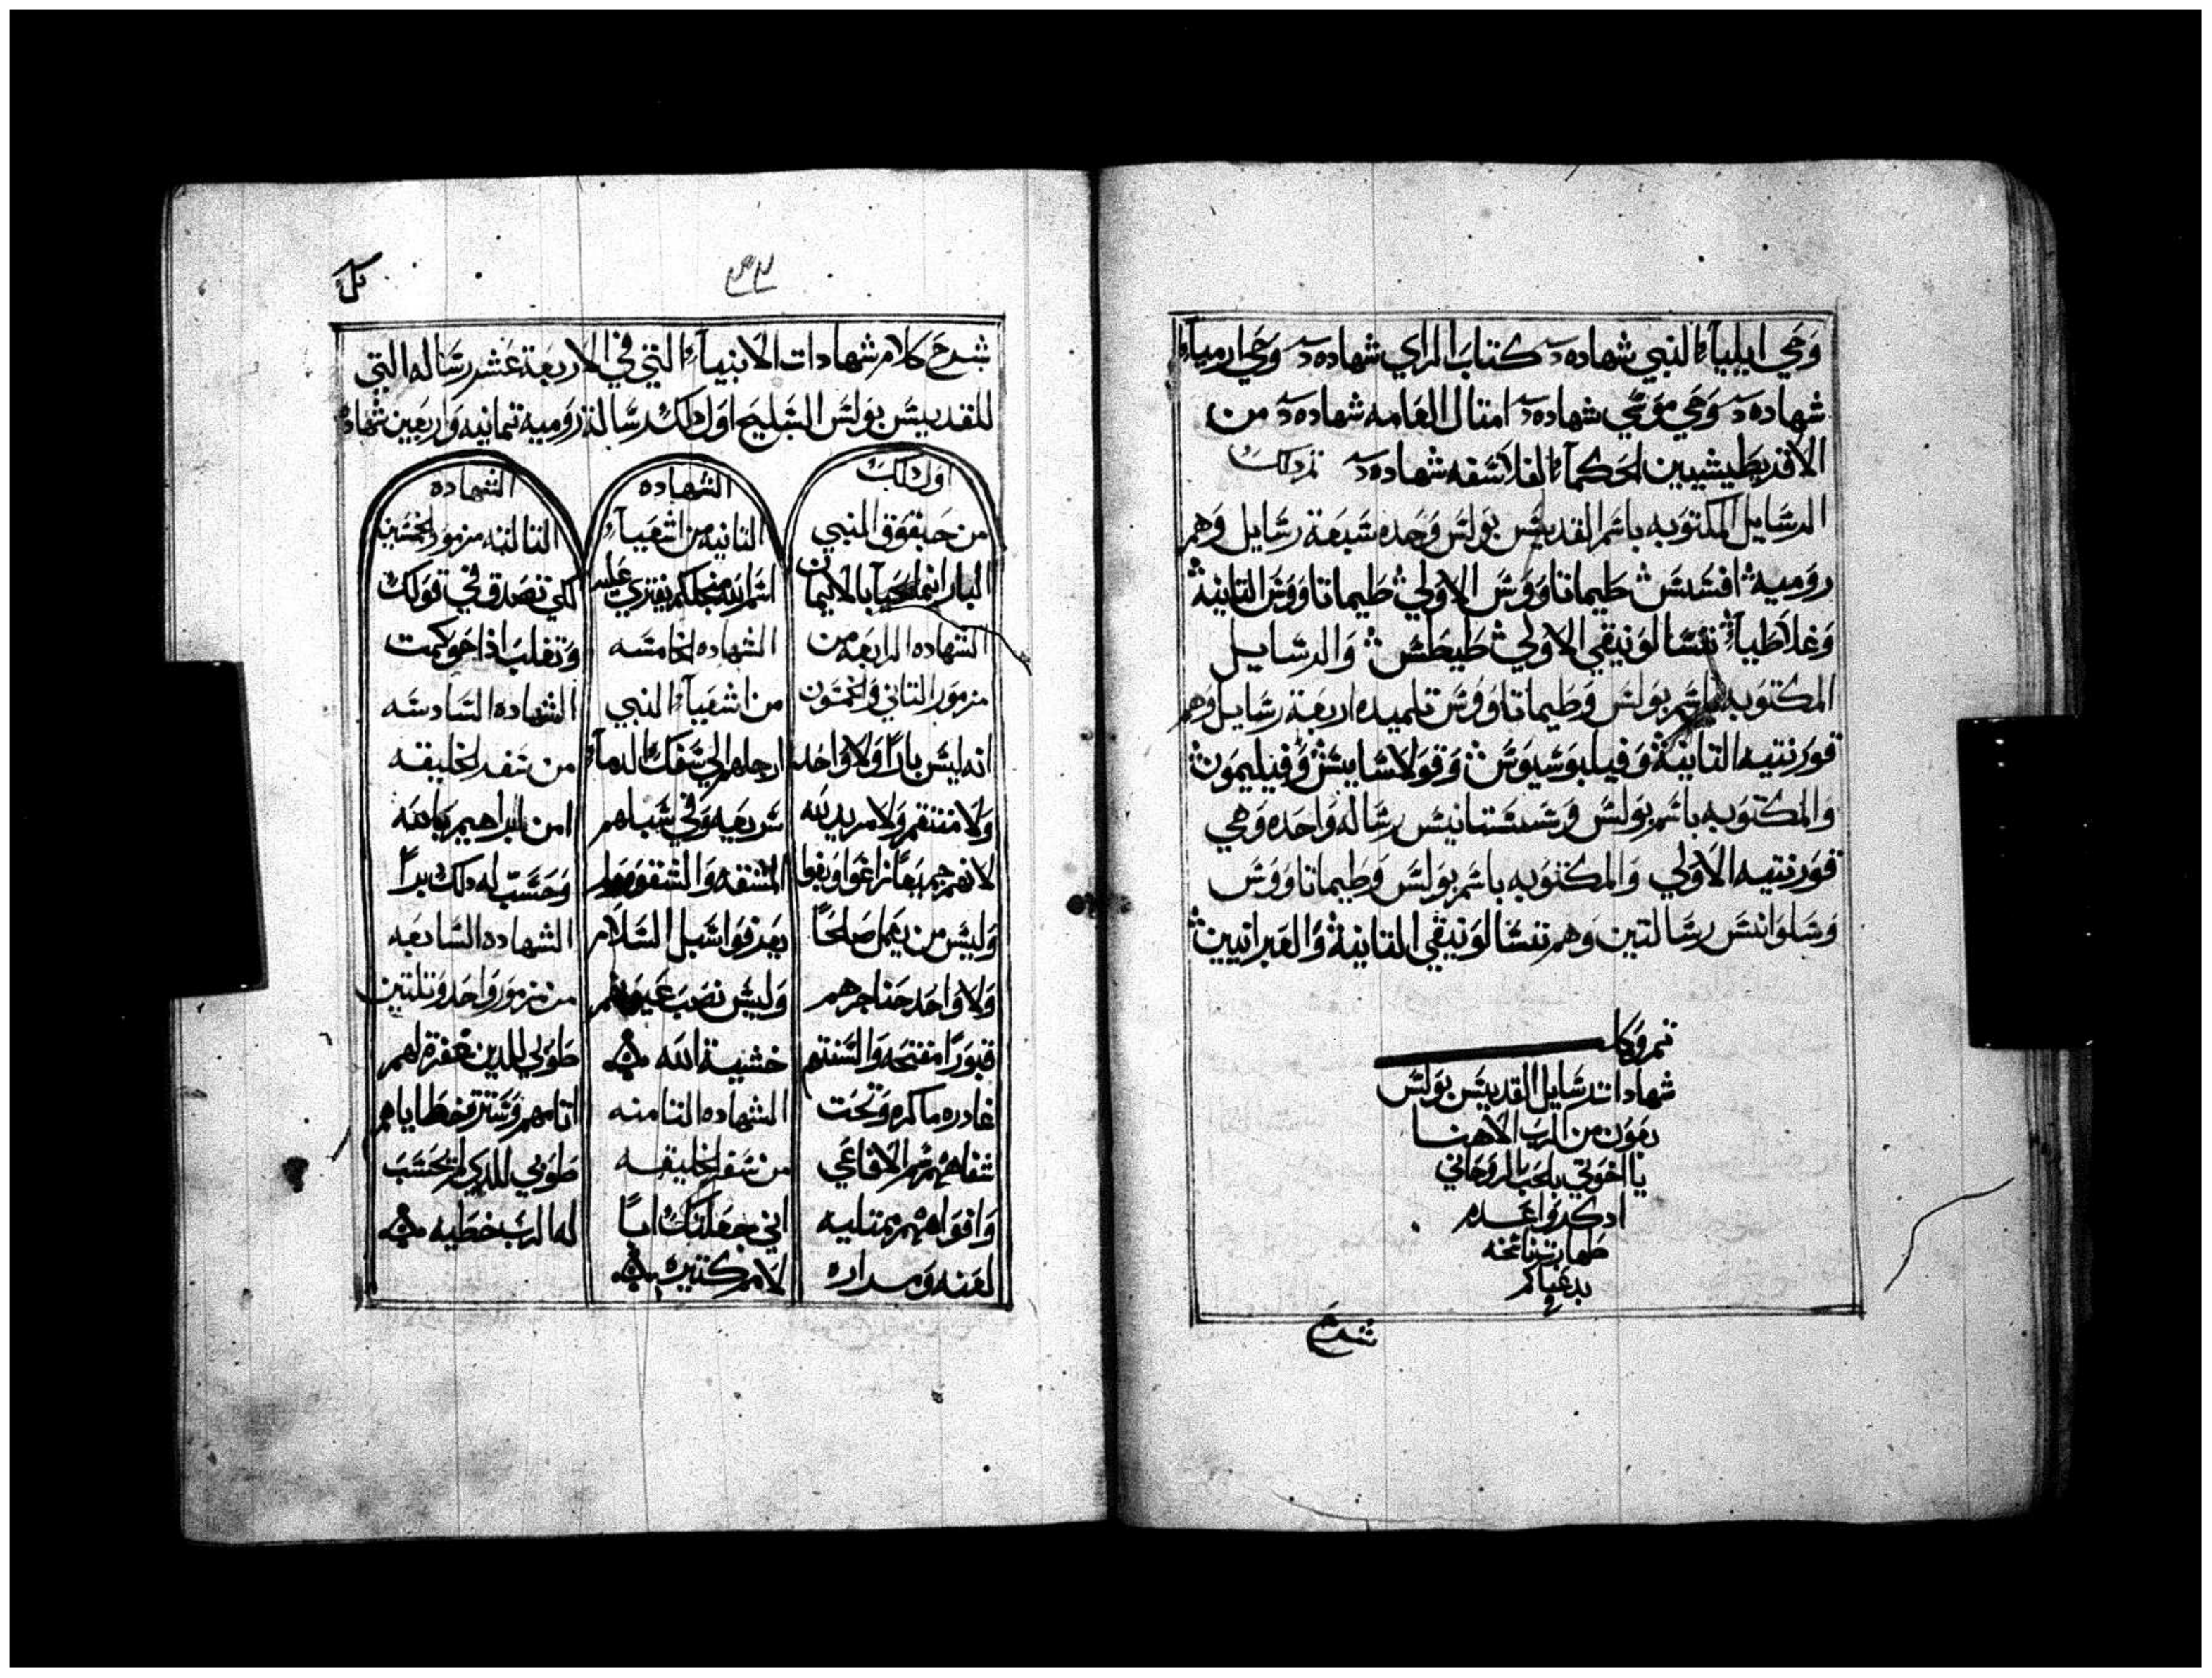 وحي ايلياء النبي شهاده كتاب الراي شهاده وحي ارمياء
شهاده وحي موسي شهاده امتال العامه شهاده من
الاقريطيشيين الحكماء الفلاسفه شهاده تم دلك
الرسايل المكتوبه باسم القديس بولس وحده سبعة رسايل وهم
روميه افسس طيماتاووس الاولي طيماتاووس التانية
وغلاطياء تسالونيقي الاولي طيطس والرسايل
المكتوبه باسم بولس وطيماتاووس تلميده اربعة رسايل وهم
قورنتيه التانية وفيلبوسيوس وقولاسايس وفيليمون
والمكتوبه باسم بولس وسستانيس رساله واحده وهي
قورنتيه الاولي والمكتوبه باسم بولس وطيماتاووس
وسلوانس رسالتين وهم تسالونيقي التانية والعبرانيين
تم وكل
شهادات رسايل القديس بولس
بعون من الرب الاهنا
يا اخوتي بالحب الروحاني
ادكروا عبده
بدعياكم
شرح
شرح كلام شهادات الانبياء التي في الاربعة عشر رساله التي
للقديس بولس السليح اول دلك رسالة روميه تمانيه واربعين شهاده
اول دلك
من حبقوق النبي
البار انما يحيا بالايمان
الشهاده الرابعه من
مزمور التاني وخمسون
انه ليس بارا ولا واحد
ولا متفهم ولا مريد لله
لانهم جميعا زاغوا وبغوا
وليس من يعمل صالحا
ولا واحد حناجرهم
قبورا مفتحه والسنتهم
غادره ماكره وتحت
شفاههم سم الافاعي
وافواههم ممتليه
لعنه ومراره
الشهاده
التانيه من اشعياء
اسم الله من اجلكم يفتري عليه
الشهاده الخامسه
من اشعياء النبي
ارجلهم الي سفك الدماء
سريعه وفي سبلهم
المشقه والشقوه ولم
يعرفوا سبل السلام
وليس نصب عيونهم
خشية الله
الشهاده التامنه
من سفر الخليقه
اني جعلتك ابا
لامم كتيره
الشهاده
التالته مزمور الخمسين
لكي تصدق في قولك
وتغلب اذا حوكمت
الشهاده السادسه
من سفر الخليقه
امن ابراهيم بالله
وحسب له دلك برا
الشهاده السابعه
من مزمور واحد وتلتين
طوبي للدين غفرة لهم
اتامهم وسترة خطاياهم
طوبي للدي لم يحسب
له الرب خطيه